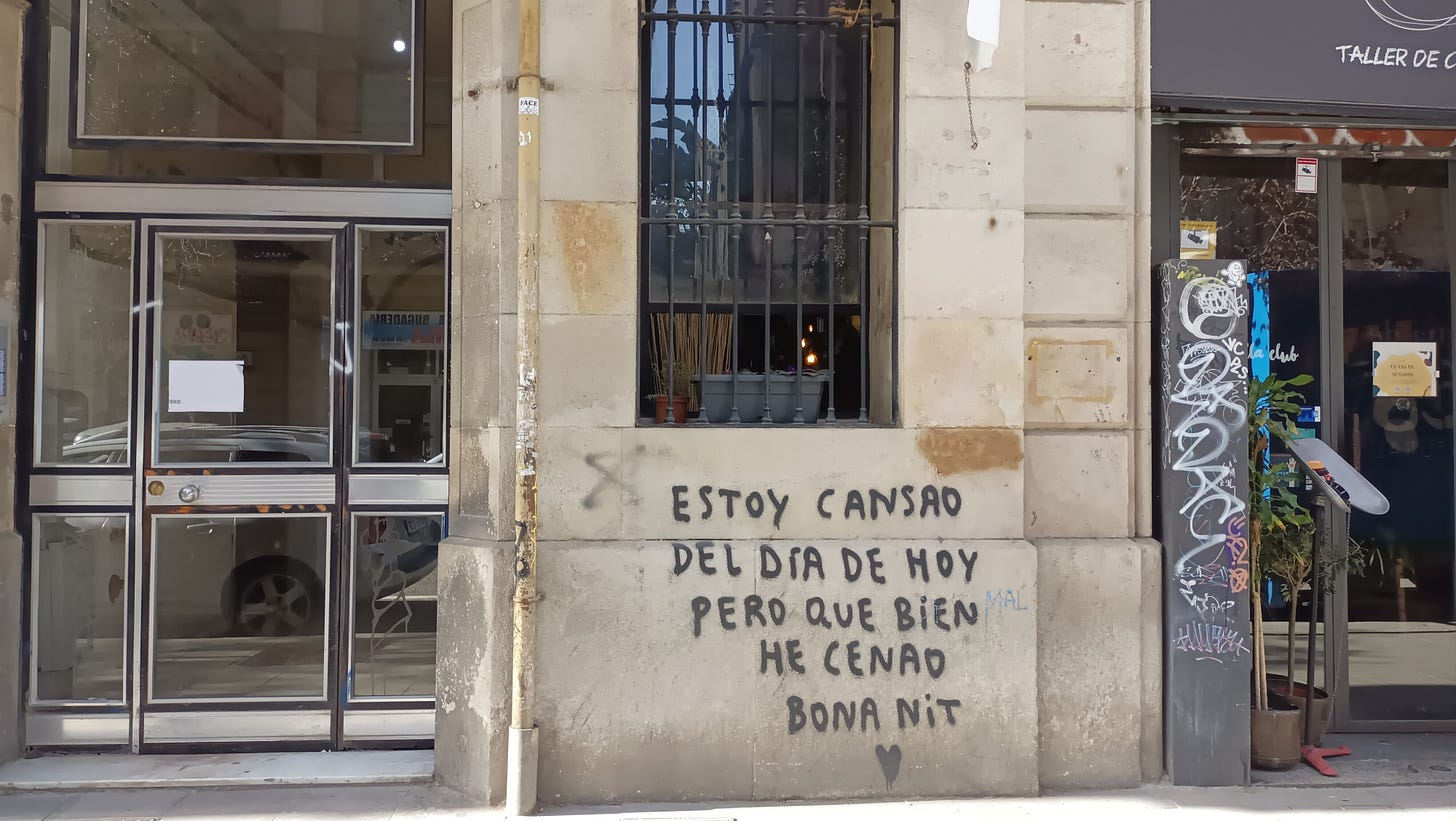 FACE
TALLER DE C
BUGADERIA
la club
CLASS IS
SESSION
ESTOY CANSAO
DEL DÍA DE HOY
PERO QUE BiEN
MAL
HE CENAO
BONA NiT